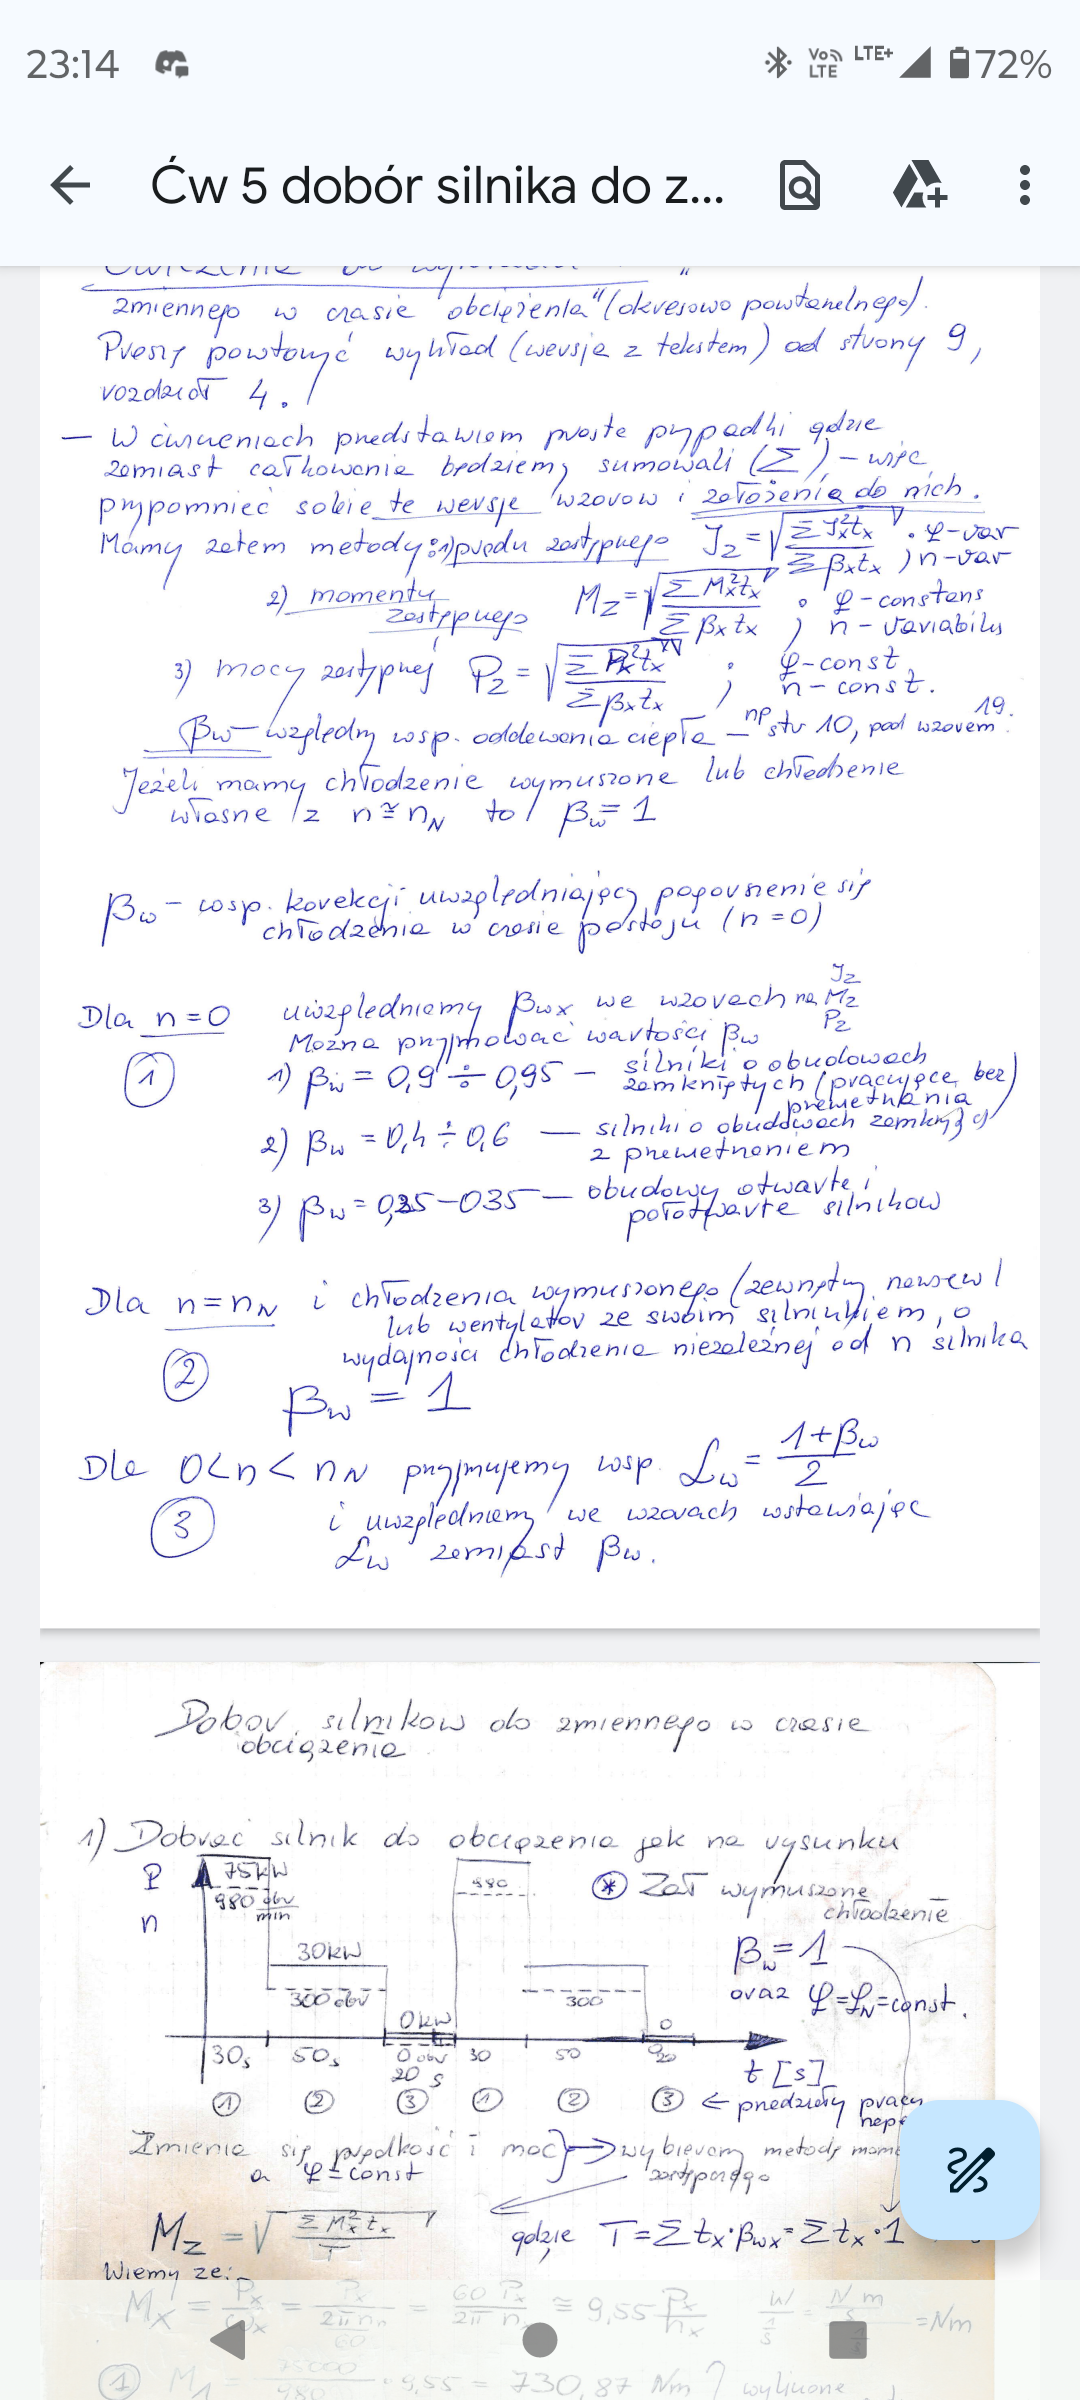 23:14 Vo LTE LTE+ 72%
Ćw 5 dobór silnika do z...
zmiennego w czasie obciążenia" (okresowo powtarzalnego).
Proszę powtórzyć wykład (wersja z tekstem) od strony 9,
rozdział 4.
— W ćwiczeniach przedstawiam proste przypadki gdzie
zamiast całkowania będziemy sumowali (Σ) – więc
przypomnieć sobie te wersje wzorów i założenia do nich.
Mamy zatem metody: 1) prądu zastępnego I_z = √(Σ I_x² t_x / Σ β_x t_x) . φ-var ; n-var
2) momentu zastępnego M_z = √(Σ M_x² t_x / Σ β_x t_x) ; φ-constans n-variabilis
3) mocy zastępnej P_z = √(Σ P_x² t_x / Σ β_x t_x) ; φ-const, n-const.
β_w – względny wsp. oddawania ciepła – np str 10, pod wzorem 19.
Jeżeli mamy chłodzenie wymuszone lub chłodzenie
własne z n ≅ n_N to β_w = 1
β_w – wsp. korekcji uwzględniający pogorszenie się
chłodzenia w czasie postoju (n=0)
Dla n=0 uwzględniamy β_wx we wzorach na I_z M_z P_z
Można przyjmować wartości β_w
① 1) β_w = 0,9 ÷ 0,95 – silniki o obudowach
zamkniętych (pracujące bez przewietrzania)
2) β_w = 0,4 ÷ 0,6 — silniki o obudowach zamkniętych
z przewietrzaniem
3) β_w = 0,25 – 035 — obudowy otwarte i
półotwarte silników
Dla n = n_N i chłodzenia wymuszonego (zewnętrzny nawiew
lub wentylator ze swoim silnikiem, o
② wydajności chłodzenia niezależnej od n silnika
β_w = 1
Dla 0<n<n_N przyjmujemy wsp. α_w = (1+β_w)/2
③ i uwzględniamy we wzorach wstawiając
α_w zamiast β_w.
Dobór silników do zmiennego w czasie
obciążenia
1) Dobrać silnik do obciążenia jak na rysunku
P 75kW 980 ⊛ Zał wymuszone
n 980 obr/min chłodzenie
30kW β_w = 1
300 obr 300 oraz φ=φ_N=const.
0kW 0
30s 50s 0 obr 20 s 30 50 20 t [s]
① ② ③ ① ② ③ ← przedziały pracy
Zmienia się prędkość i moc } → wybieram metodę
a φ=const zastępczego
M_z = √(Σ M_x² t_x / T) gdzie T = Σ t_x · β_wx = Σ t_x · 1
Wiemy że:
M_x = P_x/ω_x = = 60 P_x / 2π n_x ≅ 9,55 P_x/n_x = Nm
① M_1 = 75000/980 · 9,55 = 730,87 Nm